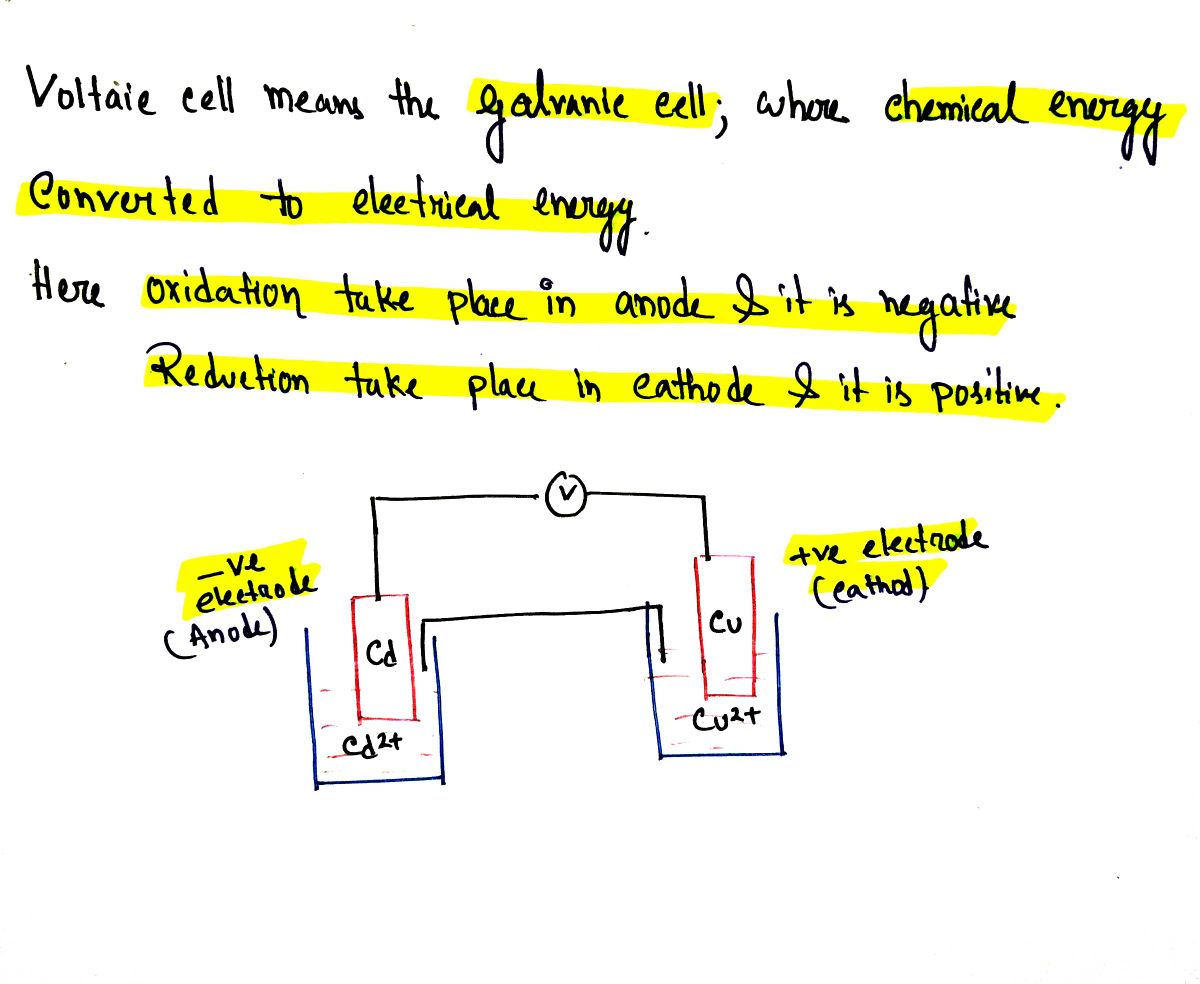 Voltaic cell means the galvanic cell; where chemical energy
Converted to electrical energy.
Here oxidation take place in anode & it is negative
Reduction take place in cathode & it is positive.
V
-ve
electrode
(Anode)
+ve electrode
(cathod)
Cd
Cu
Cd2+
Cu2+